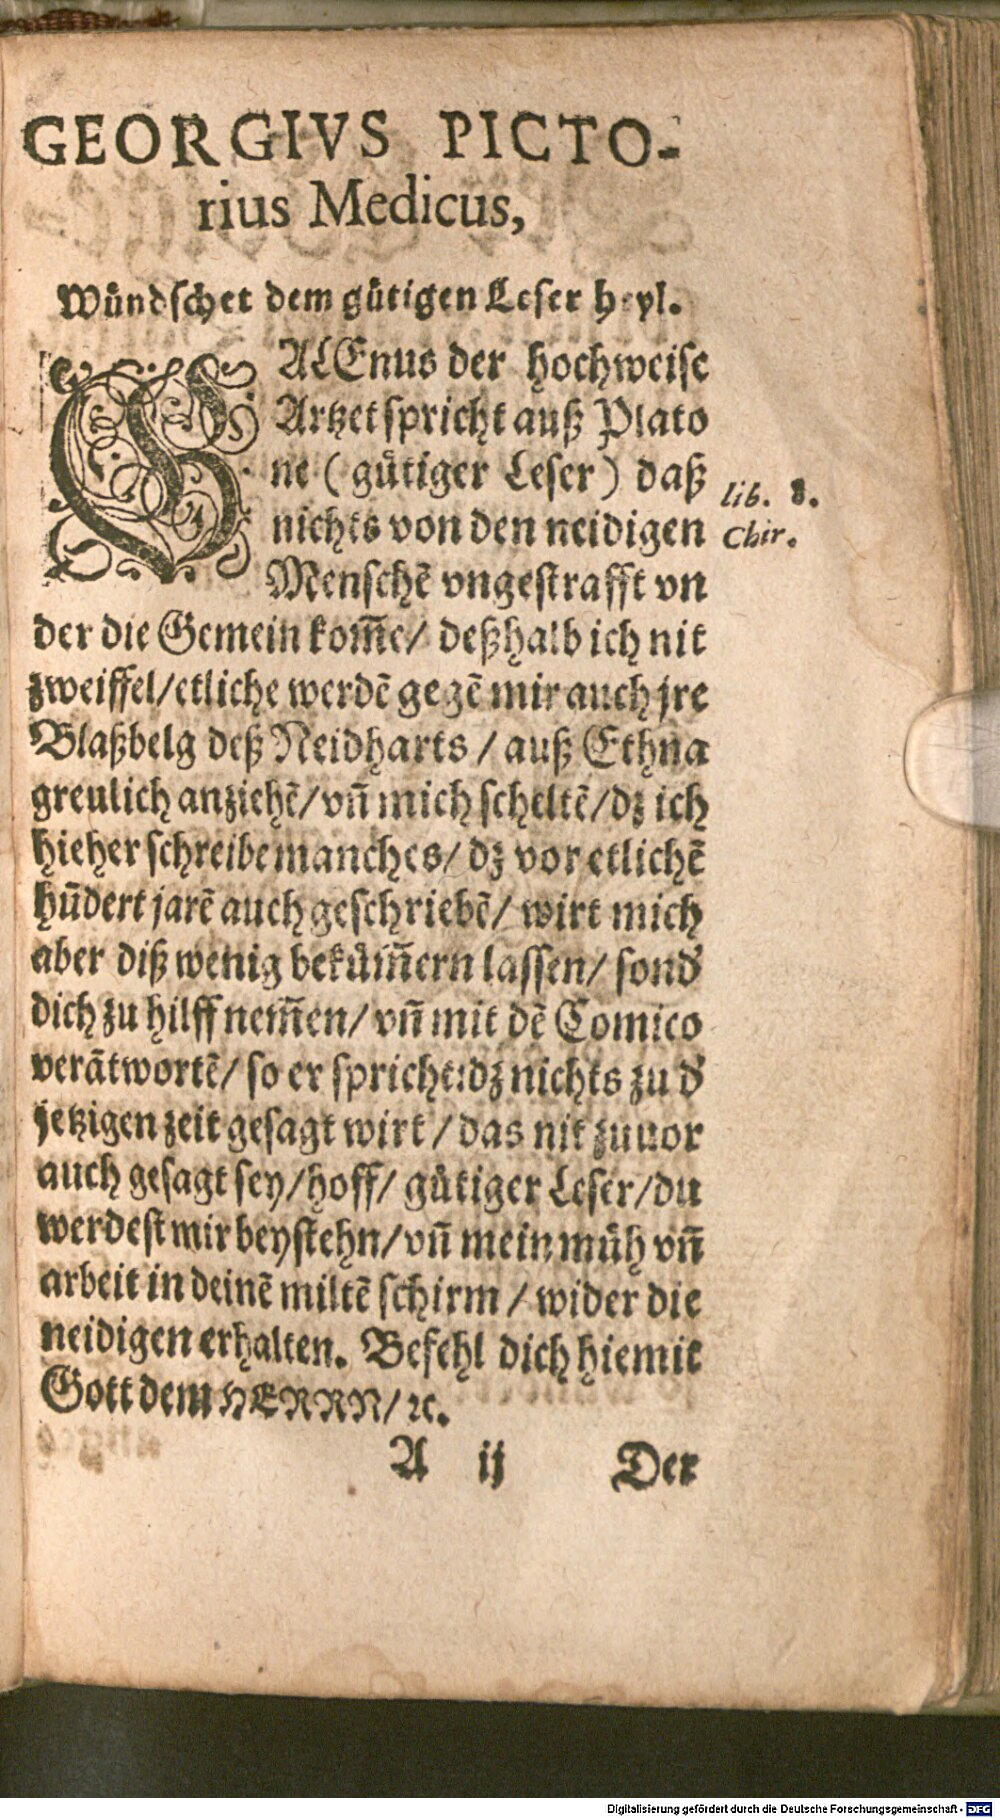 GEORGIVS PICTO-
rius Medicus,
Wündschet dem gütigen Leser heyl.
GALEnus der hochweise
Artzet spricht auß Plato
ne (gütiger Leser) daß
lib. 8.
nichts von den neidigen
Chir.
Menschē vngestrafft vn
der die Gemein kom̄e/ deßhalb ich nit
zweiffel/etliche werdē gegē mir auch jre
Blaßbelg deß Neidharts / auß Ethna
greulich anziehē/vn̄ mich scheltē/dz ich
hieher schreibe manches/ dz vor etlichē
hūdert jarē auch geschriebē/ wirt mich
aber diß wenig beküm̄ern lassen/ sond'
dich zu hilff nem̄en/ vn̄ mit dē Comico
verātwortē/ so er spricht:dz nichts zu d'
jetzigen zeit gesagt wirt / das nit zuuor
auch gesagt sey/hoff/ gütiger Leser/du
werdest mir beystehn/vn̄ mein müh vn̄
arbeit in deinē miltē schirm / wider die
neidigen erhalten. Befehl dich hiemit
Gott dem HERRN/ ꝛc.
A ij Der
Digitalisierung gefördert durch die Deutsche Forschungsgemeinschaft - DFG